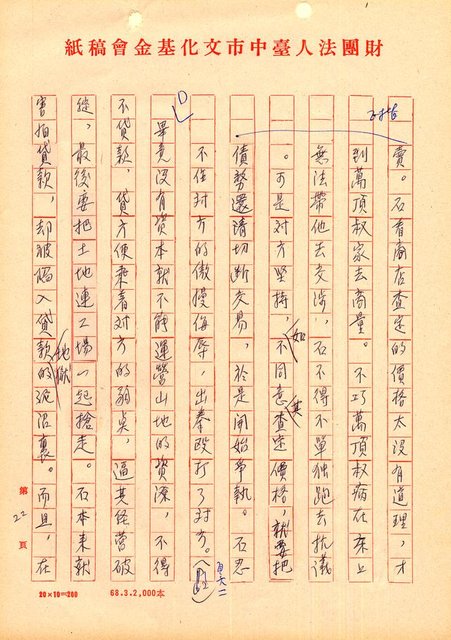 財團法人臺中市文化基金會稿紙
對諳
賣。石看商店查定的價格太沒有道理，才
到萬頂叔家去商量。不巧萬頂叔病在床上
無法帶他去交涉，石不得不單獨跑去抗議
。可是對方堅持，如果不同意查定價格，就要把
債務還清切斷交易，於是開始爭執。石忍
不住對方的傲慢侮辱，出拳毆打了對方。
畢竟沒有資本就不能運營山地的資源，不得
不貸款，貸方便乘着對方的弱點，逼其經營破
綻，最後要把土地連工場一起搶走。石本來就
害怕貸款，却被陷入貸款地獄的泥沼裏。而且，在
第22頁
20×10=200
68.3.2,000本